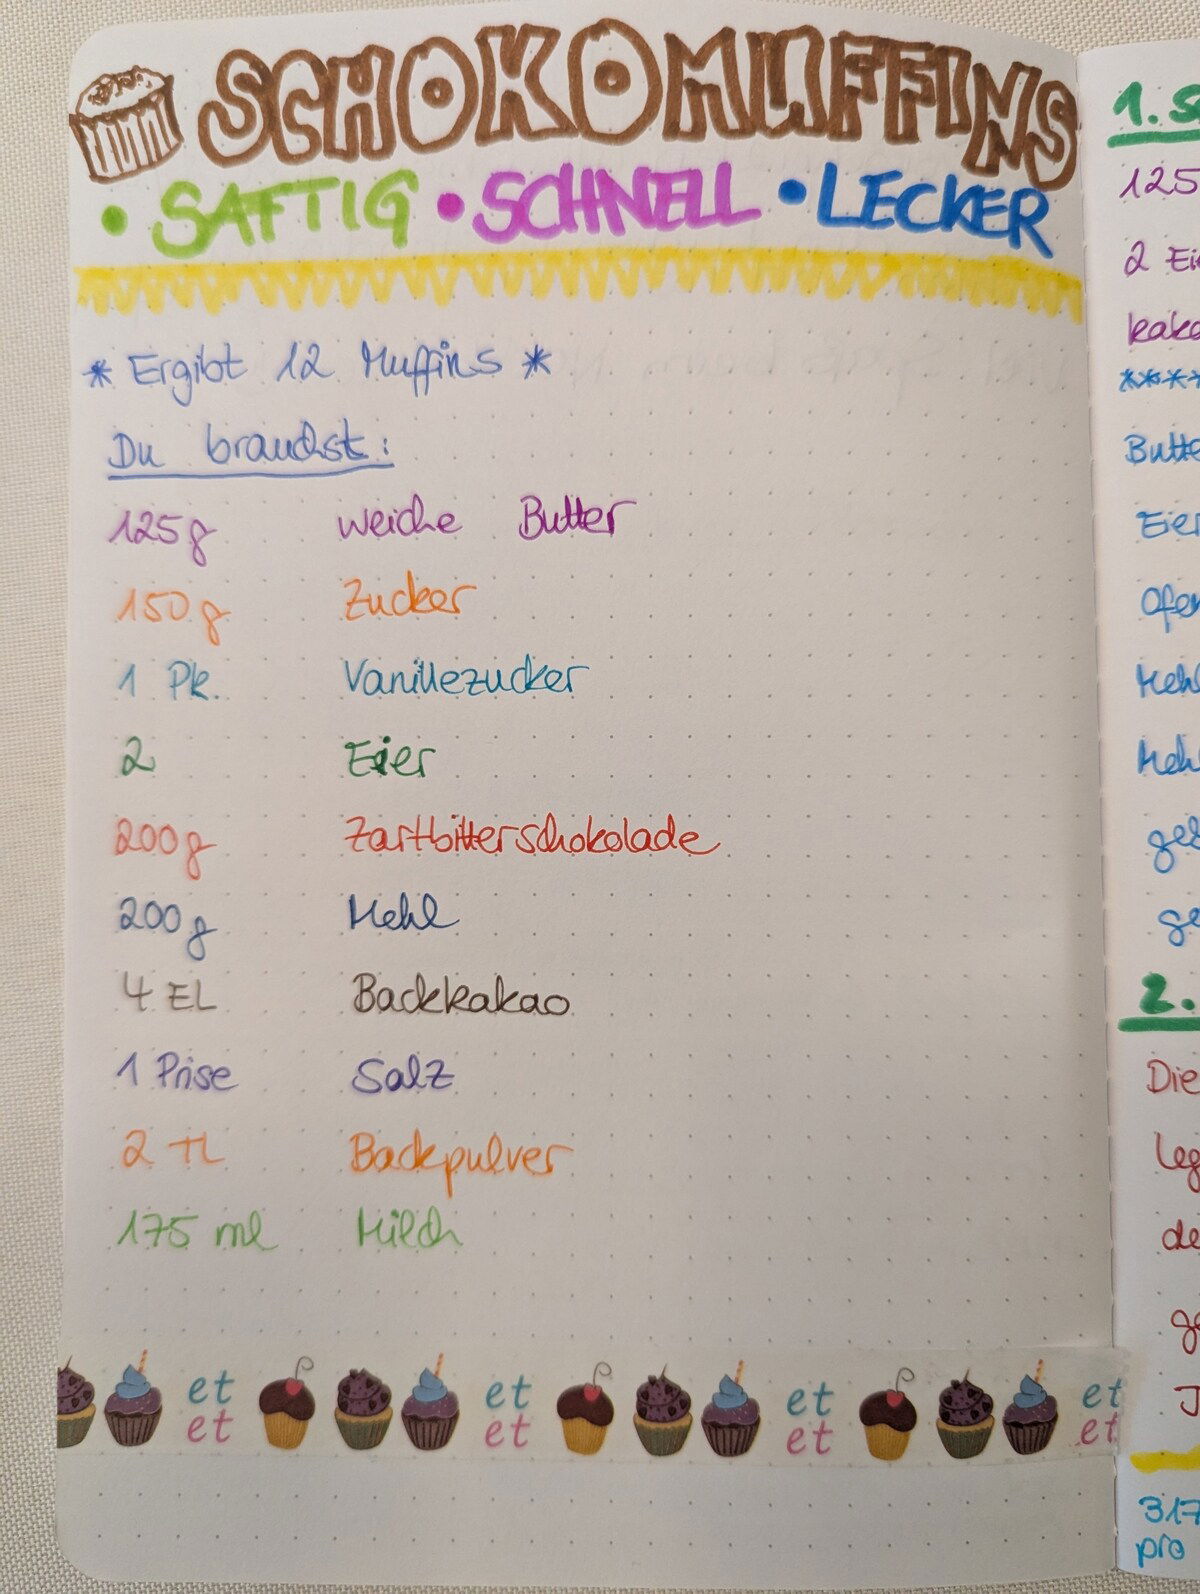 SCHOKOMUFFINS
• SAFTIG • SCHNELL • LECKER
* Ergibt 12 Muffins *
Du brauchst:
125g weiche Butter
150g Zucker
1 Pk. Vanillezucker
2 Eier
200g Zartbitterschokolade
200g Mehl
4 EL Backkakao
1 Prise Salz
2 TL Backpulver
175 ml Milch
et et et et
et et et et
1. S
125
2 Ei
kaka
****
Butte
Eier
Ofen
Mehl
Mehl
ge
2.
Die
leg
de
ge
J
317
pro